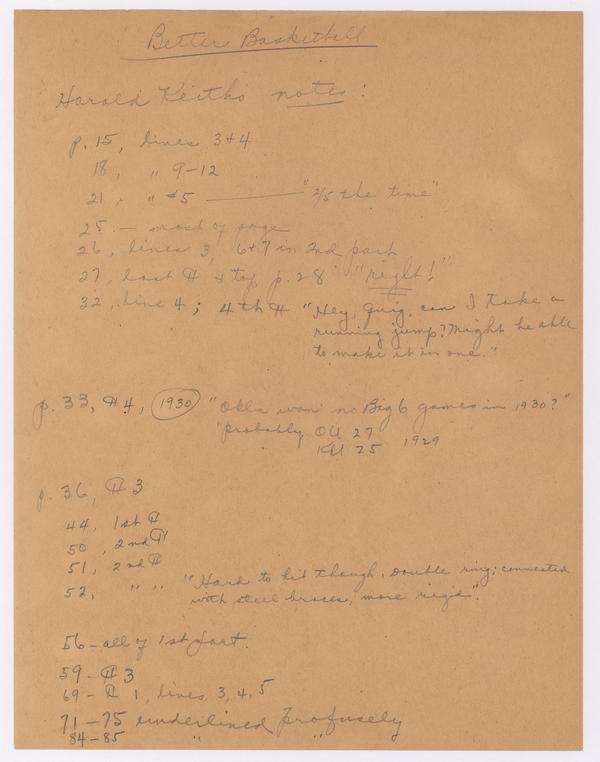 Better Basketball
Harold Keith's notes:
p. 15, lines 3+4
18, " 9-12
21, " #5 — "2/5 the time"
25 — most of page
26, lines 3, 6+7 in 2nd part
27, last ¶ + top p. 28 "right!"
32, line 4; 4th ¶ "Hey, Quig, can I take a
running jump? Might be able
to make it in one."
p. 33, ¶ 4, 1930 "Okla won no Big 6 games in 1930?"
"probably OU 27
KU 25 1929
p. 36, ¶ 3
44, 1st ¶
50, 2nd ¶
51, 2nd ¶
52, " " "Hard to hit though. Double ring; connected
with steel braces, more rigid".
56 - all of 1st part.
59 - ¶ 3
69 - ¶ 1, lines 3, 4, 5
71-75 underlined profusely
84-85 " "